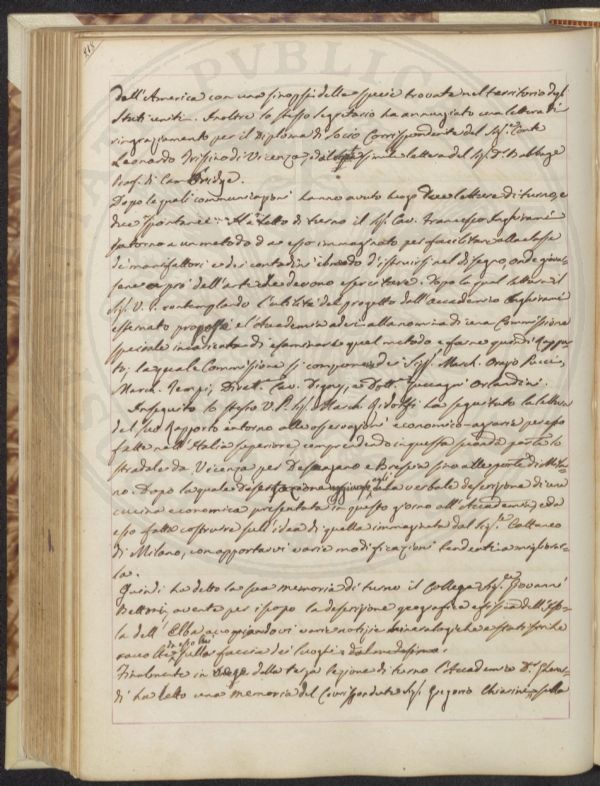 218
dall'America con una sinopsi delle specie trovate nel territorio degli
Stati uniti. Inoltre lo stesso segretario ha annunziato una lettera di
ringraziamento per il Diploma di Socio Corrispondente del Sig. Conte
Leonardo Trissino di Vicenza, ed simile lettera del Sig. Babbage
Prof. di Cambridge.
Dopo le quali comunicazioni hanno avuto luogo tre letture di turno, e
due spontanee. Ha letto di turno il Sig. Cav. Francesco Inghirami
intorno a un metodo da esso immaginato per facilitare alla classe
dei manifattori e dei contadini il modo d'istruirsi nel disegno, onde giovar-
sene a pro dell'arte che devono esercitare. Dopo la qual lettura il
Sig. V. P. contemplando l'utilità del progetto dell'accademico Inghirami
esternato propose all'Accademia di venire alla nomina di una Commissione
speciale incaricata di esaminare quel metodo e farne quindi Rappor-
to; la quale Commissione si compone dei Sigg. March. Orazio Pucci,
March. Tempi, Dirett. Cav. Digny, e Dott. Zuccagni Orlandini.
In seguito lo stesso V. P. Sig. March. Ridolfi ha seguitato la lettura
del suo Rapporto intorno alle osservazioni economico-agrarie per esso
fatte nell'Italia superiore, comprendendo in questa seconda parte lo
stradale da Vicenza per Desenzano e Brescia fino alle porte di Mila-
no. Dopo la quale egli la verbale descrizione di una
cucina economica presentata in questo giorno all'Accademia, e da
esso fatta costruire sull'idea di quella immaginata dal Sig. Cattaneo
di Milano, con apportarvi varie modificazioni tendenti a migliorar-
la.
Quindi ha detto la sua memoria di turno il Collega Sig. Giovanni
Bettoni, avente per scopo la descrizione geografica e fisica dell'Iso-
la dell'Elba accoppiandovi varie notizie mineralogiche e statistiche
raccolte sulla faccia dei luoghi dal medesimo.
Finalmente in vece della terza lezione di turno l'Accademico D.
ha letto una memoria del Corrispondente Sig. Gregorio Chiarini sulla